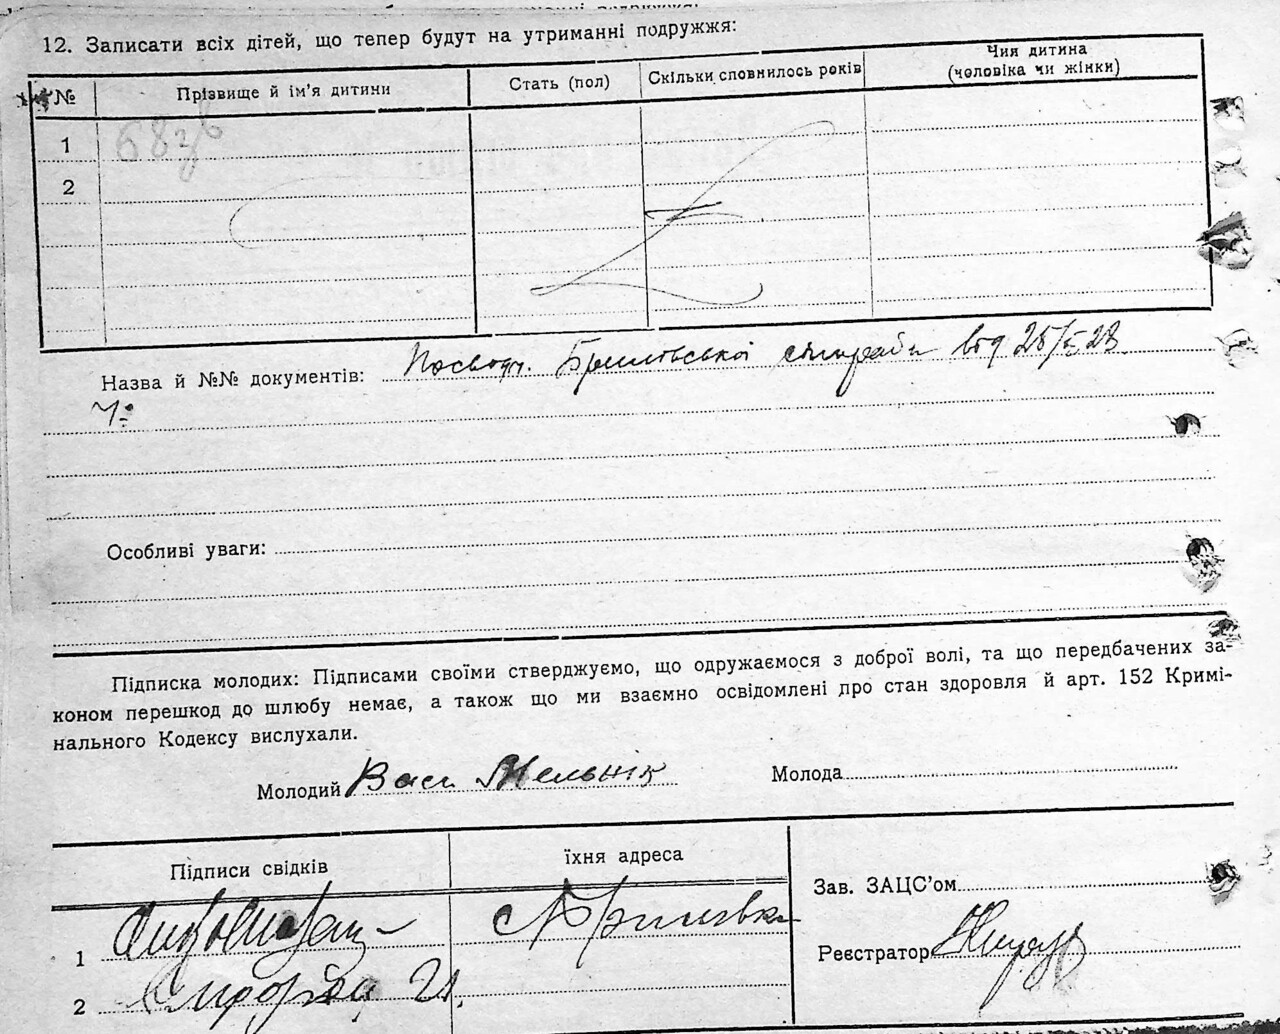 12. Записати всіх дітей, що тепер будут на утриманні подружжя:
№ Прізвище й ім'я дитини Стать (пол) Скільки сповнилось років Чия дитина
(чоловіка чи жінки)
1
2
Назва й №№ документів: від
Особливі уваги:
Підписка молодих: Підписами своїми стверджуємо, що одружаємося з доброї волі, та що передбачених за-
коном перешкод до шлюбу немає, а також що ми взаємно освідомлені про стан здоровля й арт. 152 Кримі-
нального Кодексу вислухали.
Молодий Васи Мельнік Молода
Підписи свідків їхня адреса
Зав. ЗАЦС'ом
1
Реєстратор
2